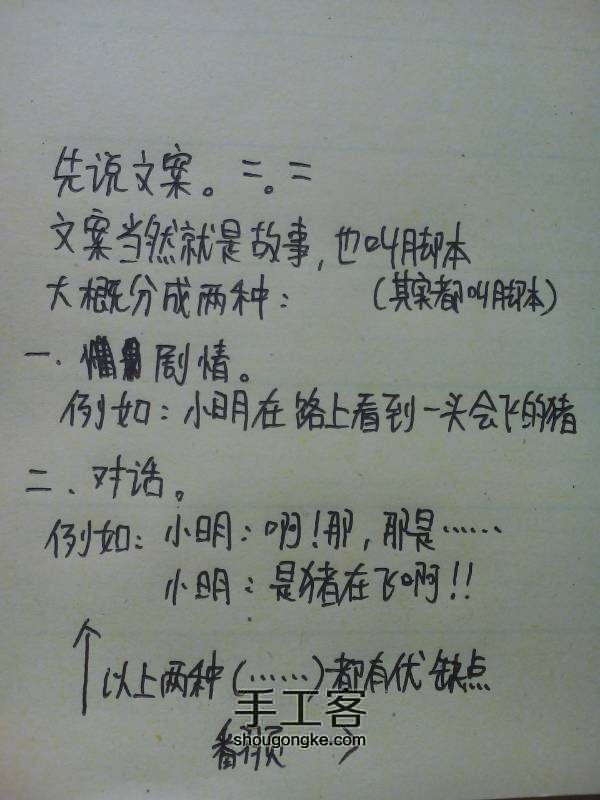 先说文案。=。=
文案当然就是故事,也叫脚本
大概分成两种: (其实都叫脚本)
一、剧情。
例如:小明在路上看到一头会飞的猪
二、对话。
例如:小明:啊!那,那是……
小明:是猪在飞啊!!
以上两种(……)都有优缺点
手工客
shougongke.com